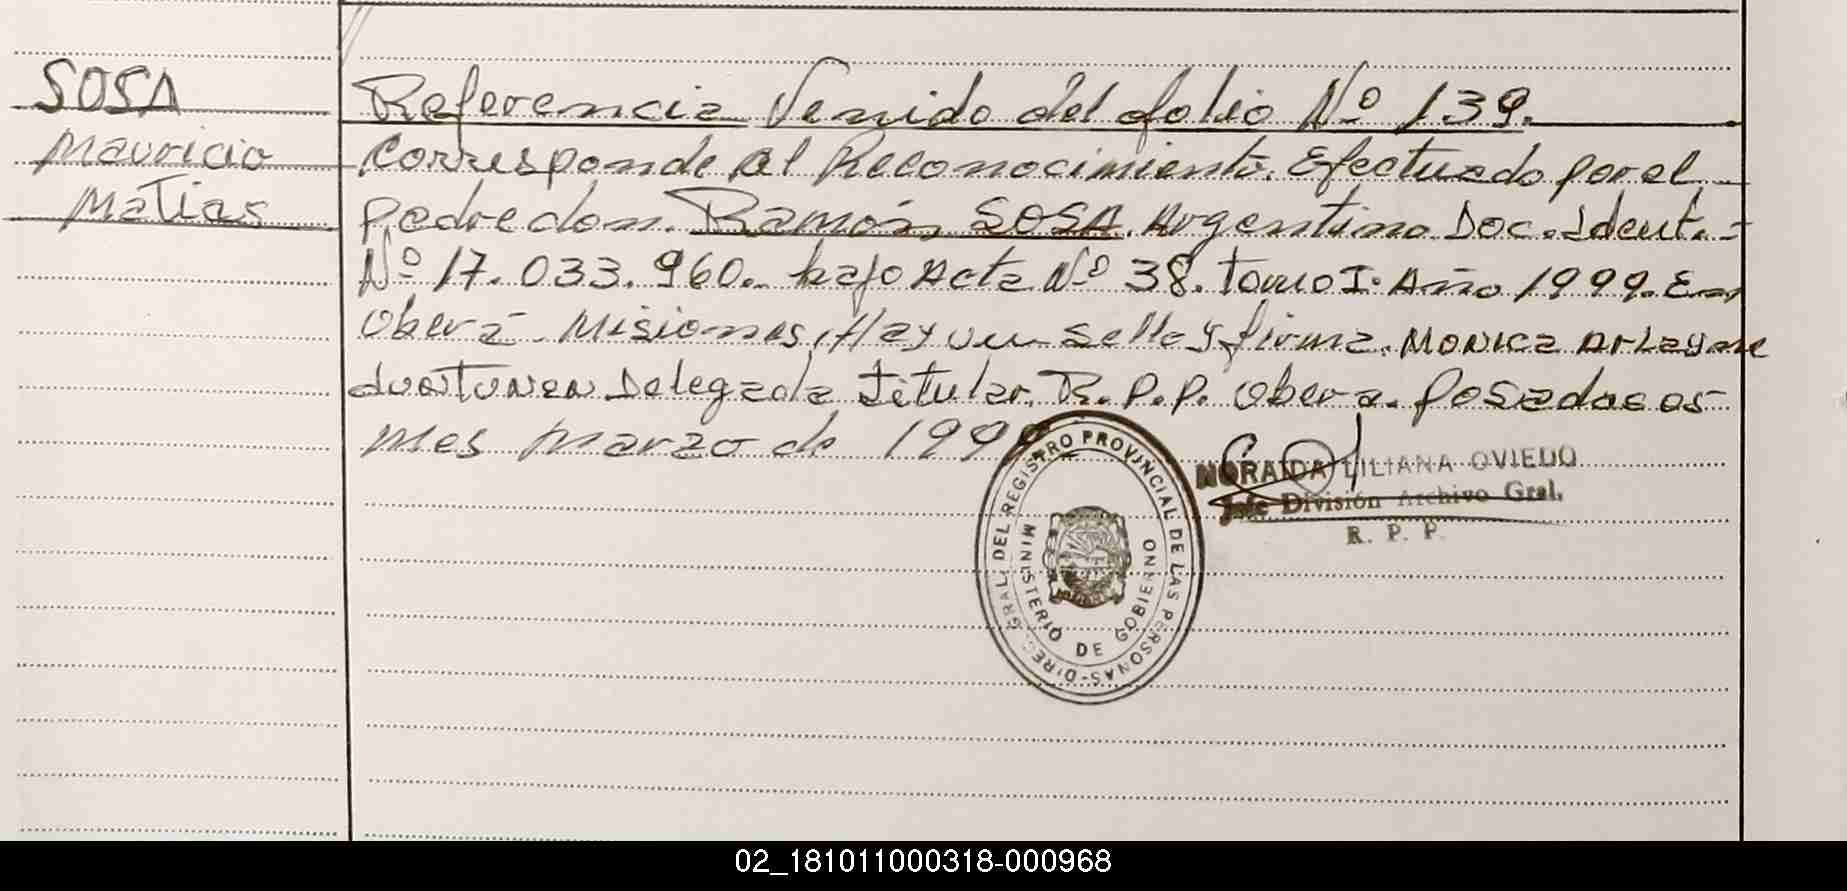 SOSA
Mauricio
Matias
Referencia Venido del folio Nº 139.
Corresponde al Reconocimiento. Efectuado por el
padre don. Ramón SOSA. Argentino Doc. Ident. -
Nº 17.033.960.- bajo Acta Nº 38. Tomo I. Año 1999. En
Oberá - Misiones, Hay un sello y firma. MONICA
Delegada Titular. R.P.P. Oberá. Posadas 05
mes marzo de 1999
DIREC. GRAL. DEL REGISTRO PROVINCIAL DE LAS PERSONAS -
MINISTERIO DE GOBIERNO
NORAIDA LILIANA OVIEDO
Jefe División Archivo Gral.
R. P. P.
02_181011000318-000968